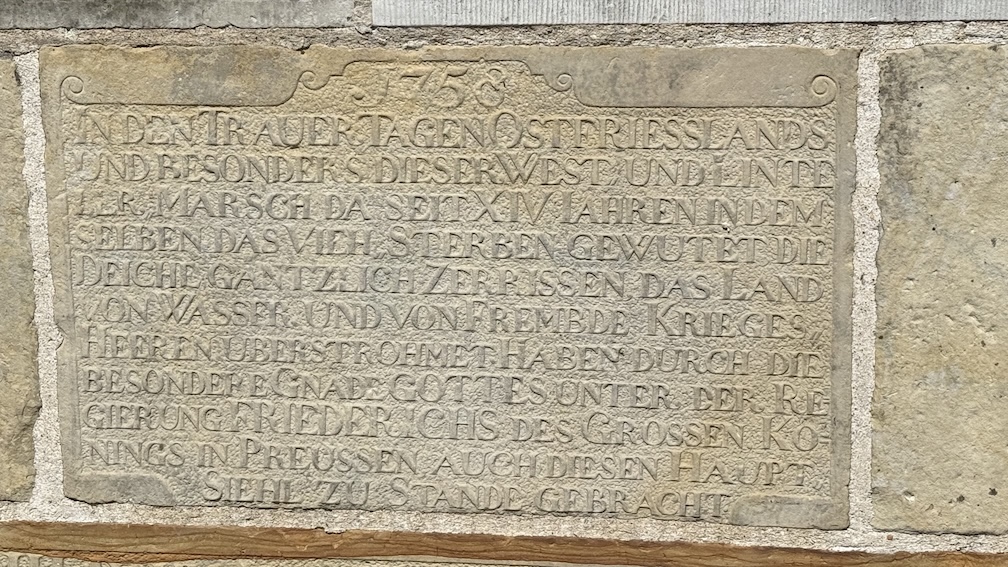 1758
IN DEN TRAUER TAGEN OSTFRIESSLANDS
UND BESONDERS DIESER WEST UND LINTE
LER MARSCH DA SEIT XIV IAHREN IN DEM
SELBEN DAS VIEH STERBEN GEWUTET DIE
DEICHE GANTZLICH ZERRISSEN DAS LAND
VON WASSER UND VON FREMBDE KRIEGES
HEEREN UBERSTROHMET HABEN DURCH DIE
BESONDERE GNADE GOTTES UNTER DER RE
GIERUNG FRIEDERICHS DES GROSSEN KO=
NINGS IN PREUSSEN AUCH DIESEN HAUPT
SIEHL ZU STANDE GEBRACHT